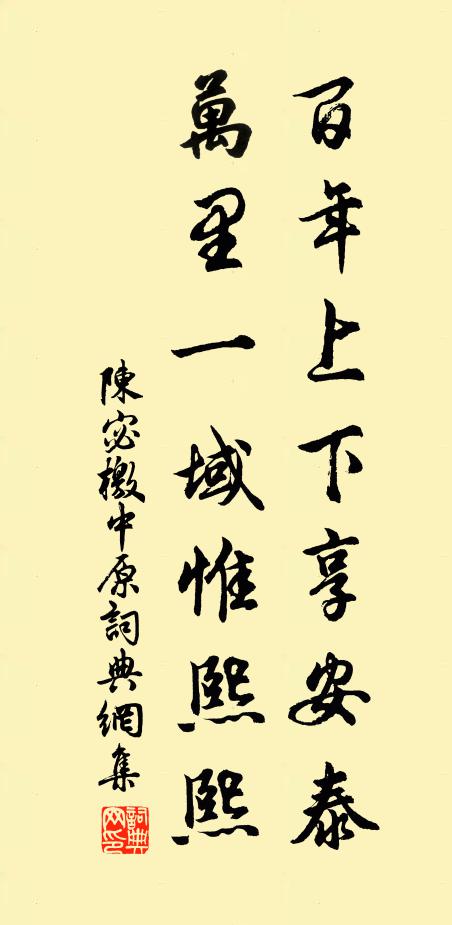 百年上下享安泰
萬里一域惟熙熙
陳宓檄中原詞典網集
詞典網印